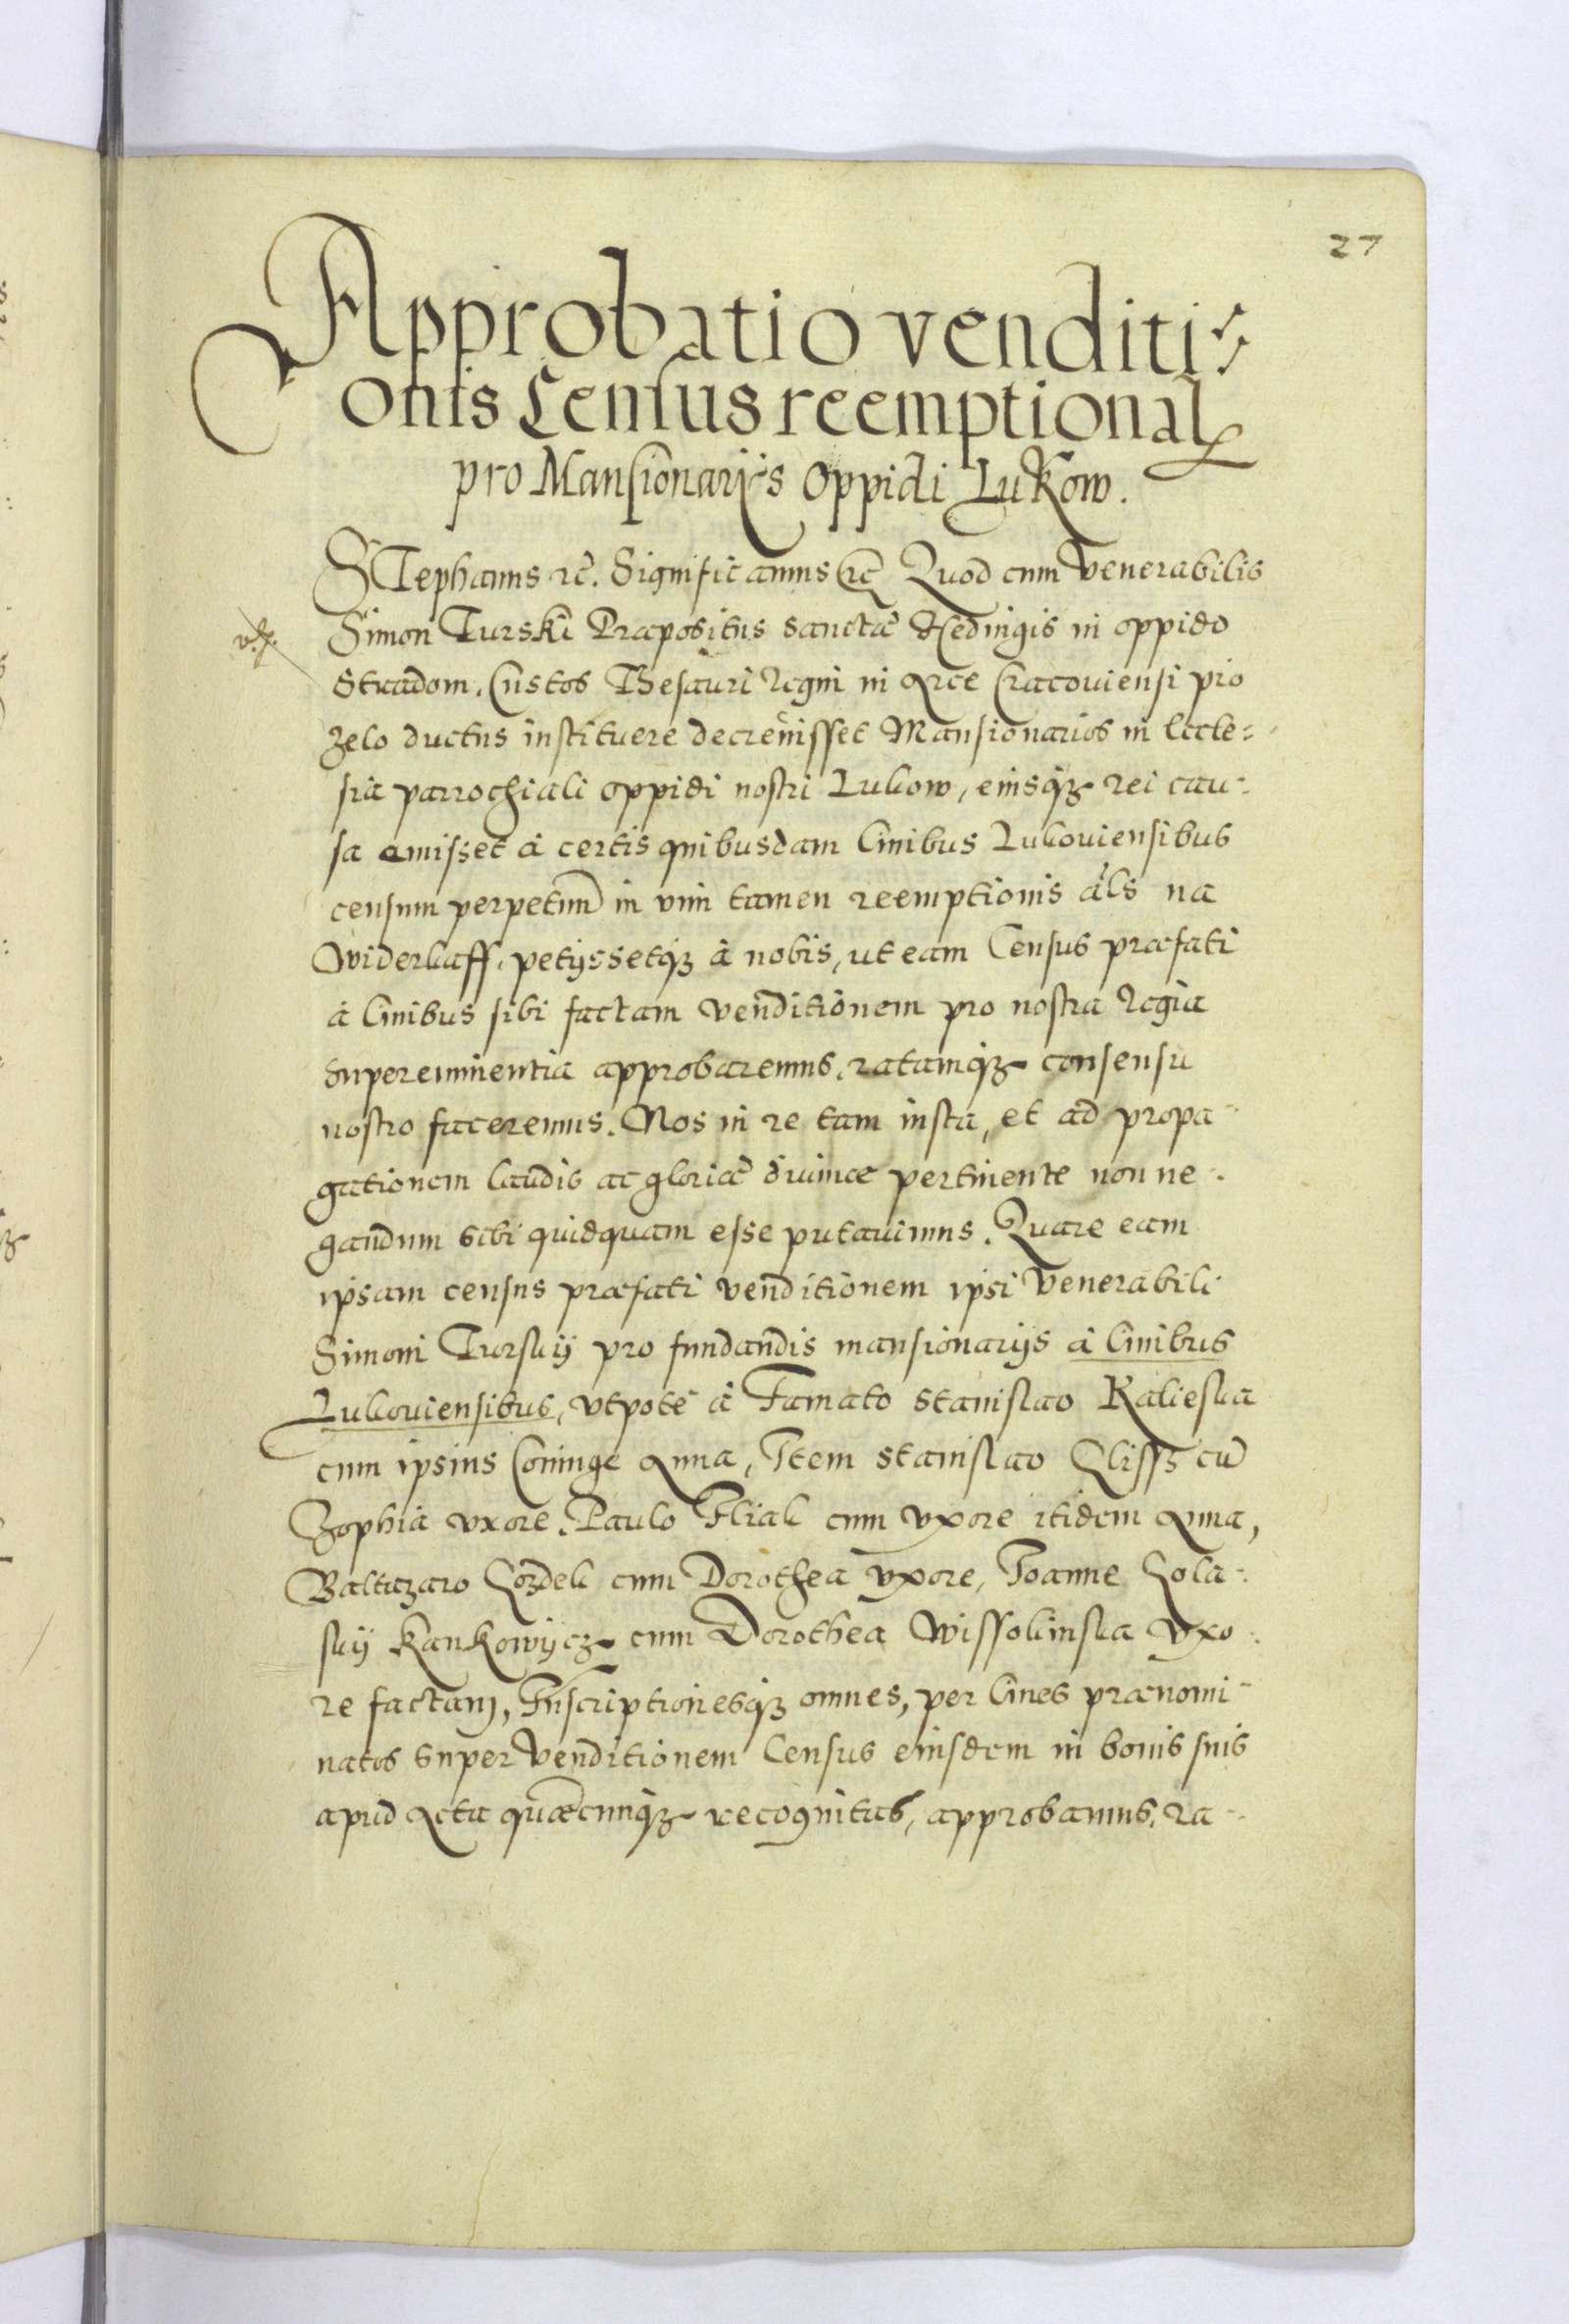 27
Approbatio venditi⸗
onis Census reemptional
pro Mansionarijs Oppidi Lukow.
STephanus rc̄. Significamus rc̄ Quod cum Venerabilis
Simon Turski Præpositus Sanctæ Heduigis in oppido
Stradom, Custos Thesauri Regni in Arce Cracouiensi pio
zelo ductus instituere decreuisset Mansionarios in Eccle⸗
sia parrochiali oppidi nostri Lukow, eiusq₃ rei cau⸗
sa emisset à certis quibusdam Ciuibus Lukouiensibus
censum perpetuū in vim tamen reemptionis als na
Widerkaff, petijssetq₃ à nobis, ut eam Census præfati
à Ciuibus sibi factam venditionem pro nostra Regia
supereminentia approbaremus, ratamq₃ consensu
nostro faceremus. Nos in re tam iusta, et ad propa⸗
gationem laudis ac gloriæ diuinæ pertinente non ne⸗
gandum sibi quidquam esse putauimus. Quare eam
ipsam census præfati venditionem ipsi Venerabili
Simoni Turskij pro fundandis mansionarijs à Ciuibus
Lukouiensibus, vtpote à Famato Stanislao Kalieska
cum ipsius Coniuge Anna, Item Stanislao Klissz cū
Zophia vxore, Paulo Fliak cum vxore itidem Anna,
Baltazaro Gozdek cum Dorothea vxore, Joanne Gola⸗
skij Kankowijcz cum Dorothea Wissokinska Vxo⸗
re factam, Inscriptionesq₃ omnes, per Ciues prænomi⸗
natos super Venditionem Census eiusdem in bonis suis
apud Acta quæcunq₃ recognitas, approbamus, ra⸗